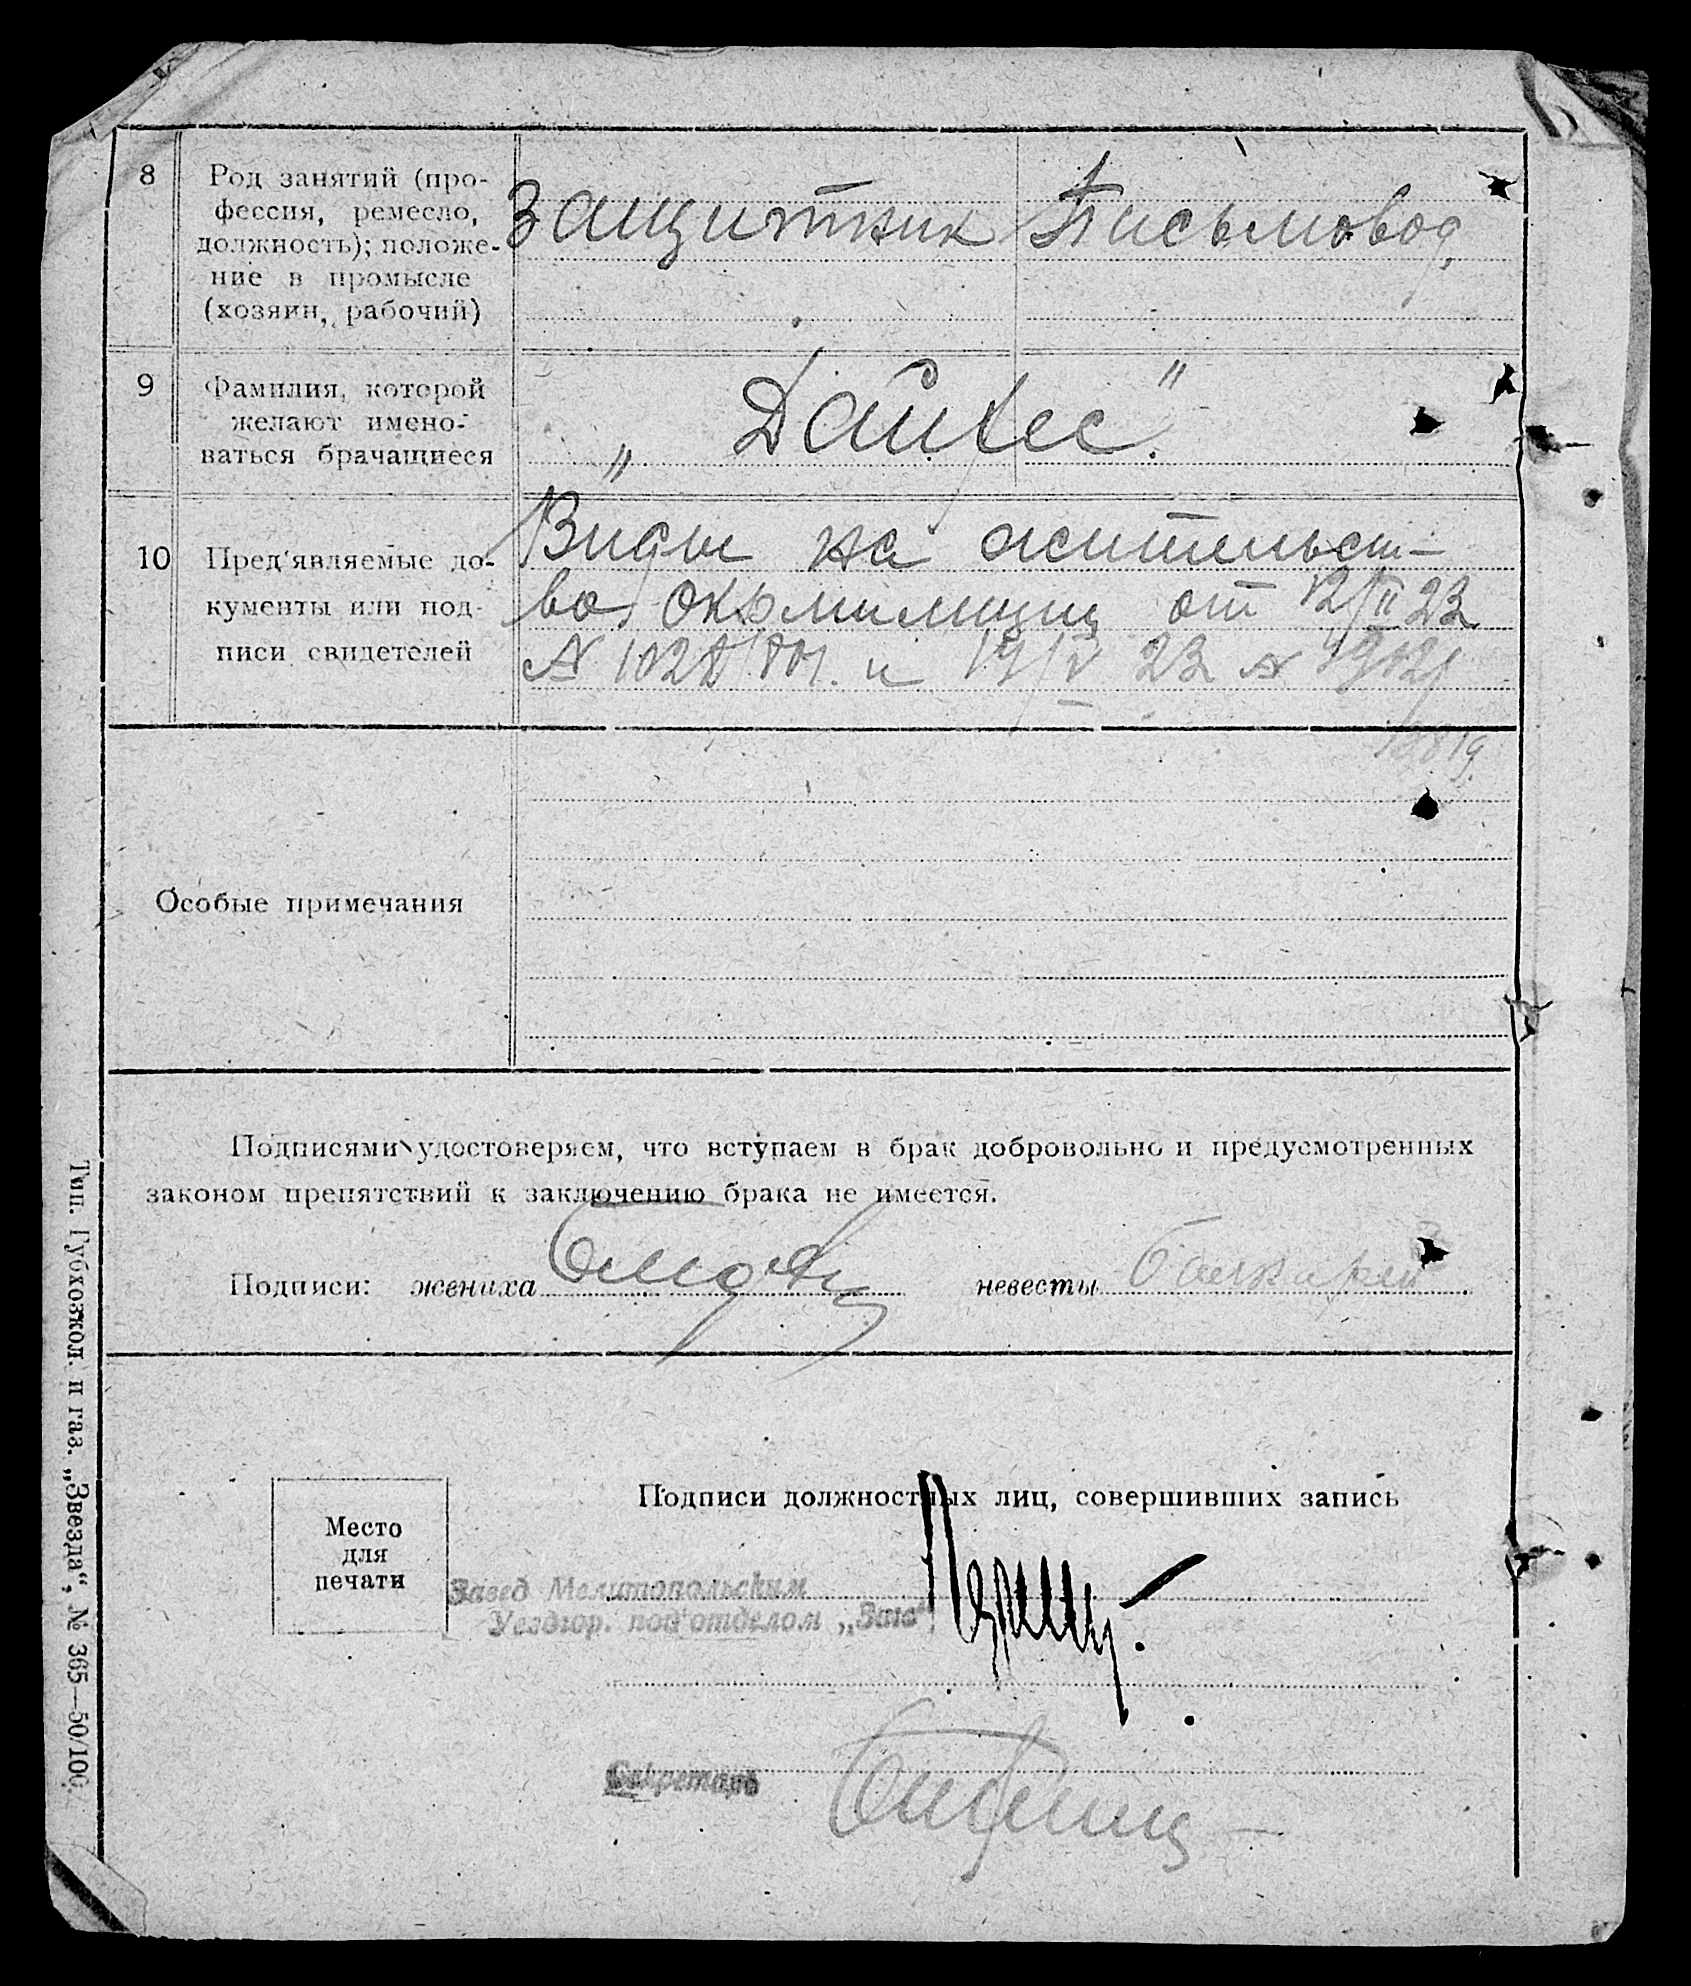 8
Род занятий (про-
фессия, ремесло,
должность); положе-
ние в промысле
(хозяин, рабочий)
Защитник
Письмовод.
9
Фамилия, которой
желают имено-
ваться брачащиеся
10
Пред'являемые до-
кументы или под-
писи свидетелей
Виды на жительст-
во Окрмилиции от 12/II 23
№ и 19/V 23 №
Особые примечания
Подписями удостоверяем, что вступаем в брак добровольно и предусмотренных
законом препятствий к заключению брака не имеется.
Подписи: жениха
невесты
Место
для
печати
Подписи должностных лиц, совершивших запись
Завед Мелитопольским
Уездгор. под'отделом „Загс“.
Секретарь
Тип. Губхозкол. и газ. „Звезда“, № 365—50/100.